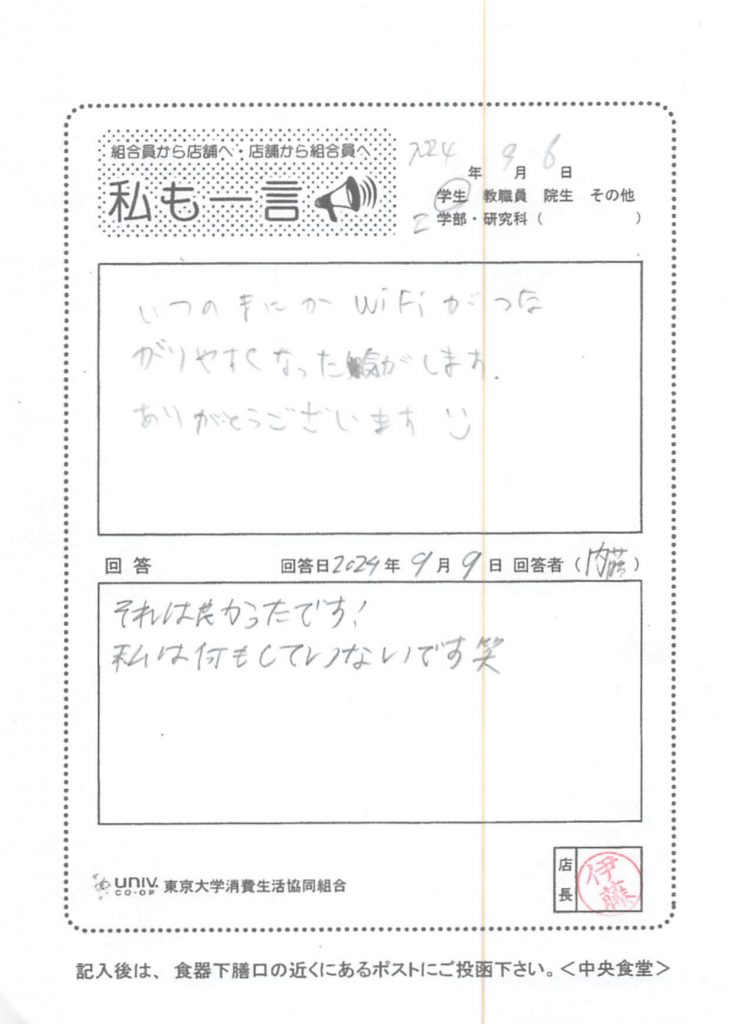 組合員から店舗へ・店舗から組合員へ
私も一言
2024年9月6日
学生 教職員 院生 その他
工学部・研究科（　）
いつのまにか WiFi がつな
がりやすくなった気がします.
ありがとうございます
回答 回答日2024年9月9日 回答者（内藤）
それは良かったです!
私は何もしていないです笑
UNIV. CO-OP 東京大学消費生活協同組合
店長
伊藤
記入後は、食器下膳口の近くにあるポストにご投函下さい。＜中央食堂＞